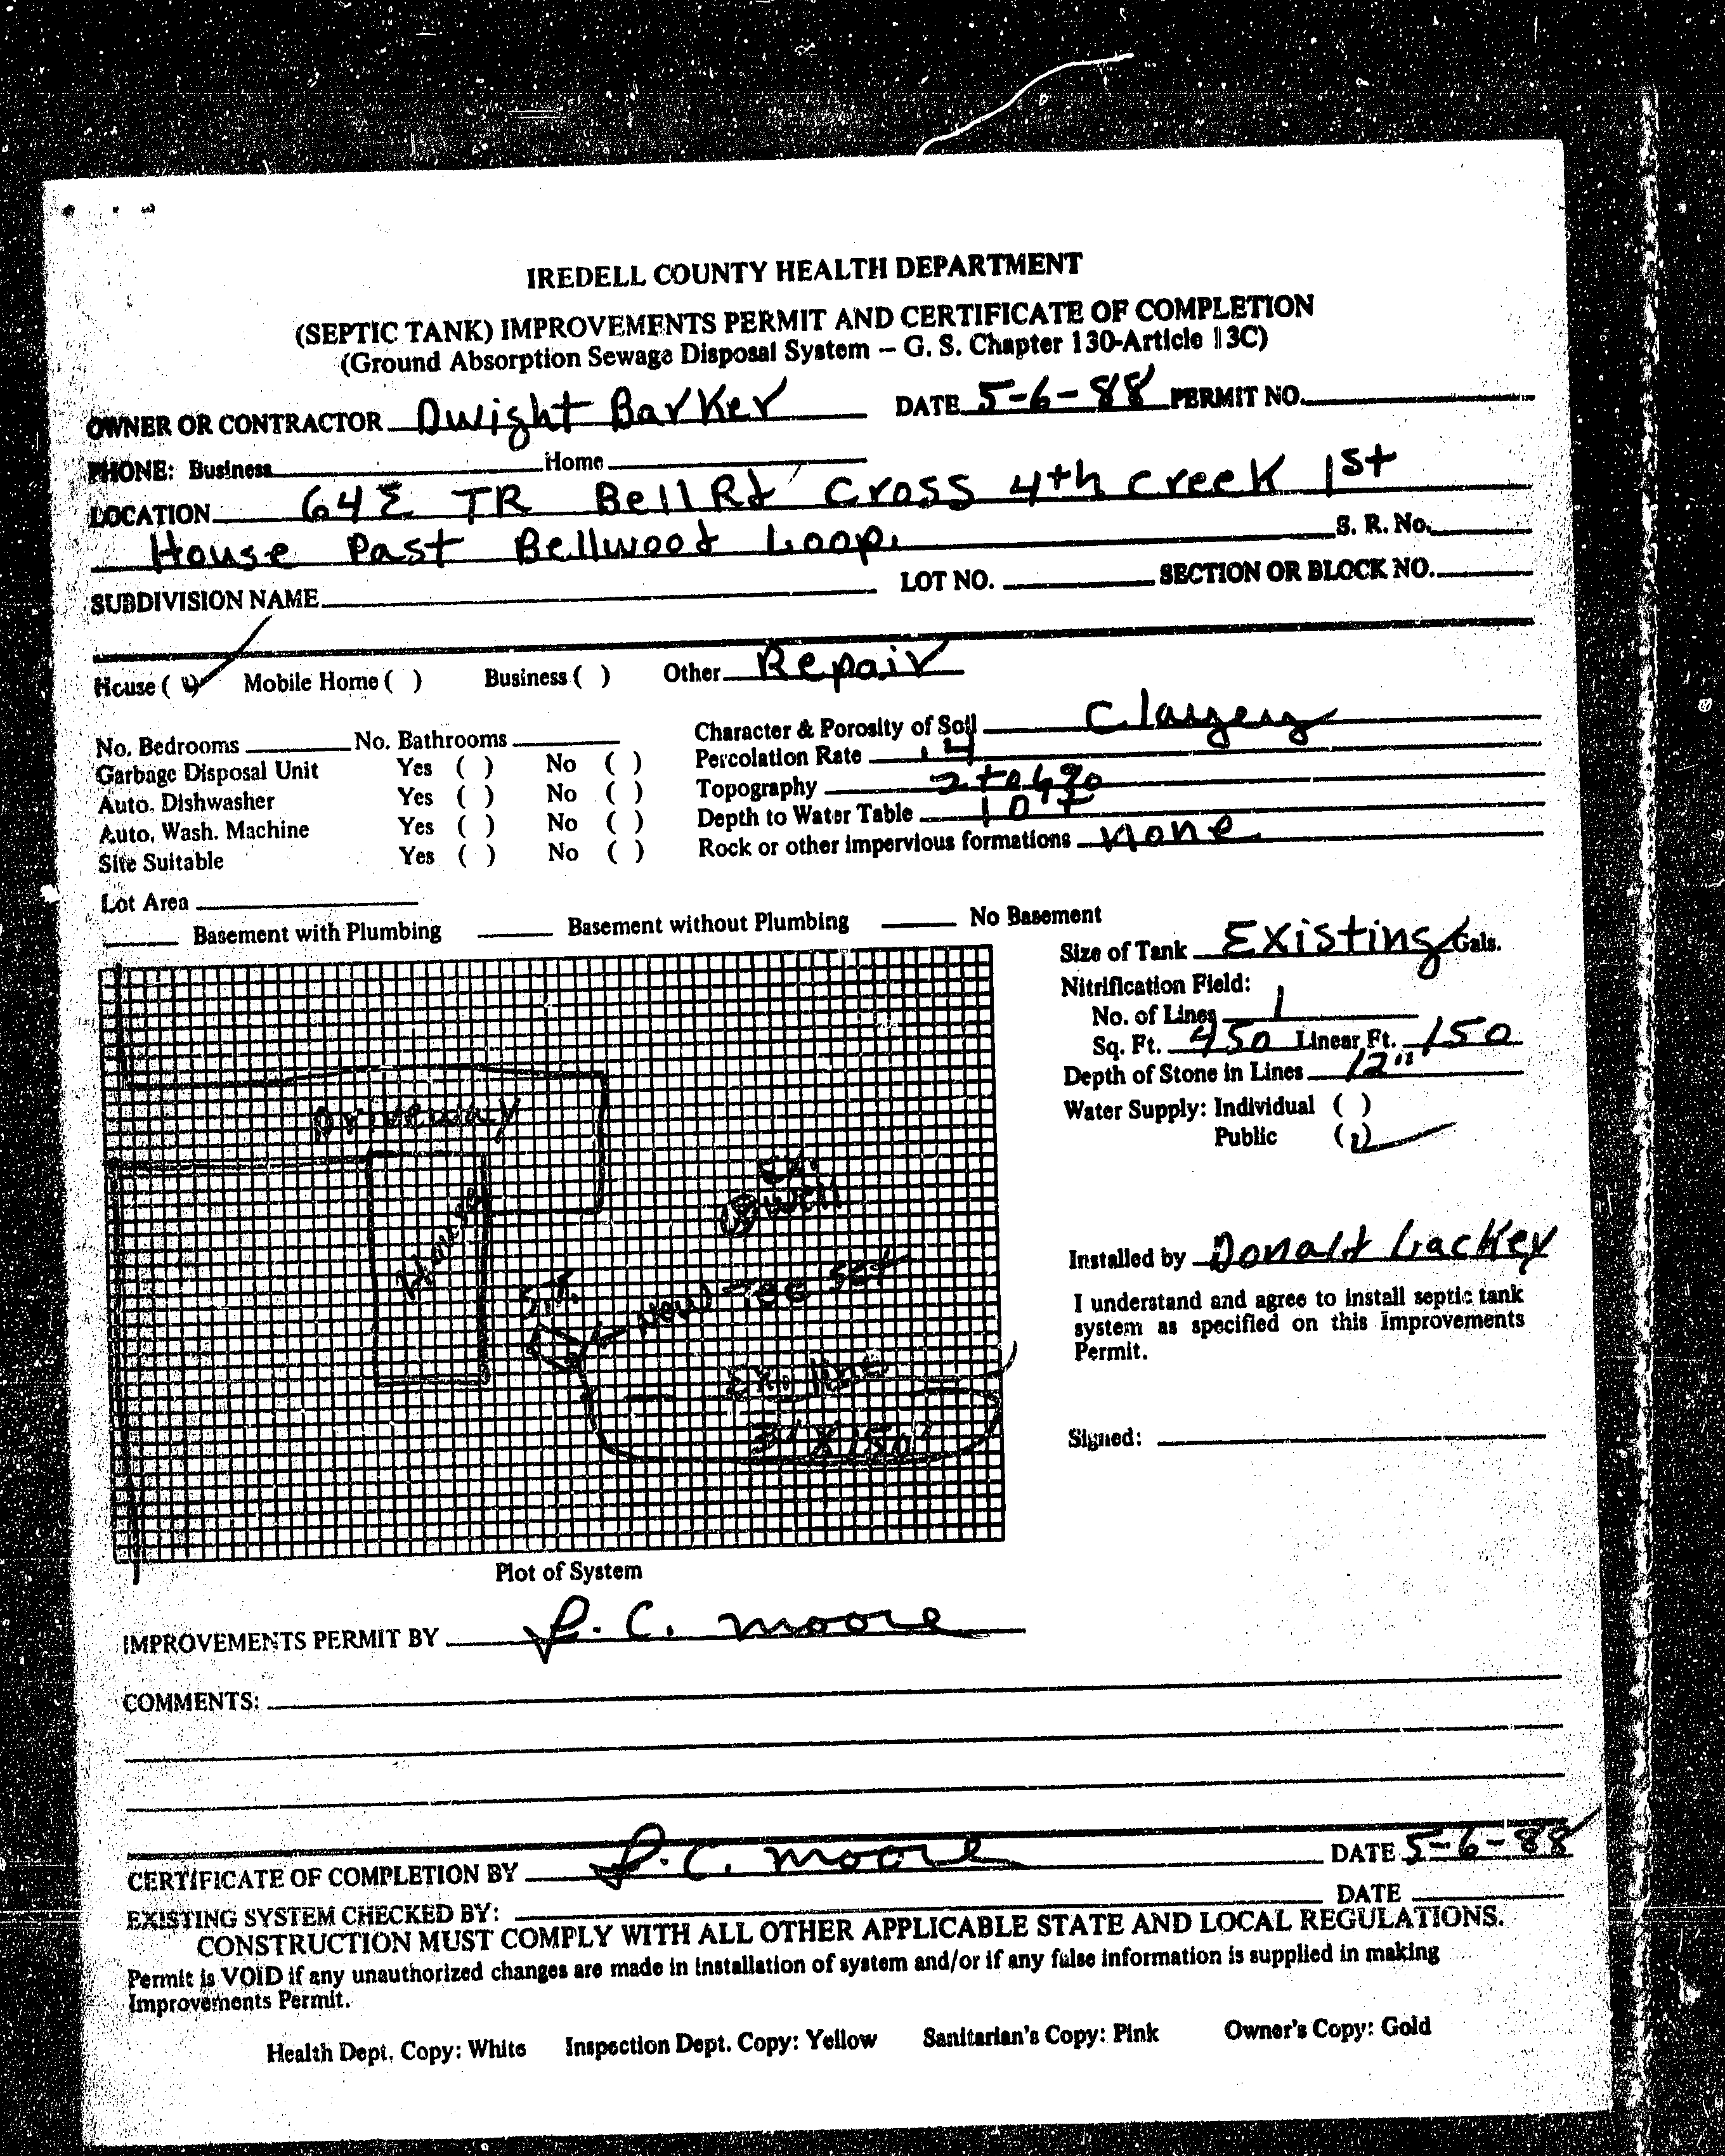 IREDELL COUNTY HEALTH DEPARTMENT
(SEPTIC TANK) IMPROVEMENTS PERMIT AND CERTIFICATE OF COMPLETION
(Ground Absorption Sewage Disposal System – G. S. Chapter 130-Article 13C)
OWNER OR CONTRACTOR Dwight Barker DATE 5-6-88 PERMIT NO.
PHONE: Business Home
LOCATION 64E TR Bell Rd Cross 4th creek 1st
House Past Bellwood Loop. S. R. No.
SUBDIVISION NAME LOT NO. SECTION OR BLOCK NO.
House ( ) Mobile Home ( ) Business ( ) Other Repair
No. Bedrooms No. Bathrooms Character & Porosity of Soil Clayey
Garbage Disposal Unit Yes ( ) No ( ) Percolation Rate .4
Auto. Dishwasher Yes ( ) No ( ) Topography 2 to 4%
Auto. Wash. Machine Yes ( ) No ( ) Depth to Water Table 10'+
Site Suitable Yes ( ) No ( ) Rock or other impervious formations none
Lot Area
Basement with Plumbing Basement without Plumbing No Basement
Size of Tank Existing Gals.
Nitrification Field:
No. of Lines 1
Sq. Ft. 450 Linear Ft. 150
Depth of Stone in Lines 12"
Water Supply: Individual ( )
Public ( )
Installed by Donald Lackey
I understand and agree to install septic tank
system as specified on this Improvements
Permit.
Signed:
Driveway
House
Ex.
Well
S.T.
New Tee set
Ex. line
3' X 150'
Plot of System
IMPROVEMENTS PERMIT BY L. C. Moore
COMMENTS:
CERTIFICATE OF COMPLETION BY L. C. Moore DATE 5-6-88
EXISTING SYSTEM CHECKED BY: DATE
CONSTRUCTION MUST COMPLY WITH ALL OTHER APPLICABLE STATE AND LOCAL REGULATIONS.
Permit is VOID if any unauthorized changes are made in installation of system and/or if any false information is supplied in making
Improvements Permit.
Health Dept. Copy: White Inspection Dept. Copy: Yellow Sanitarian's Copy: Pink Owner's Copy: Gold